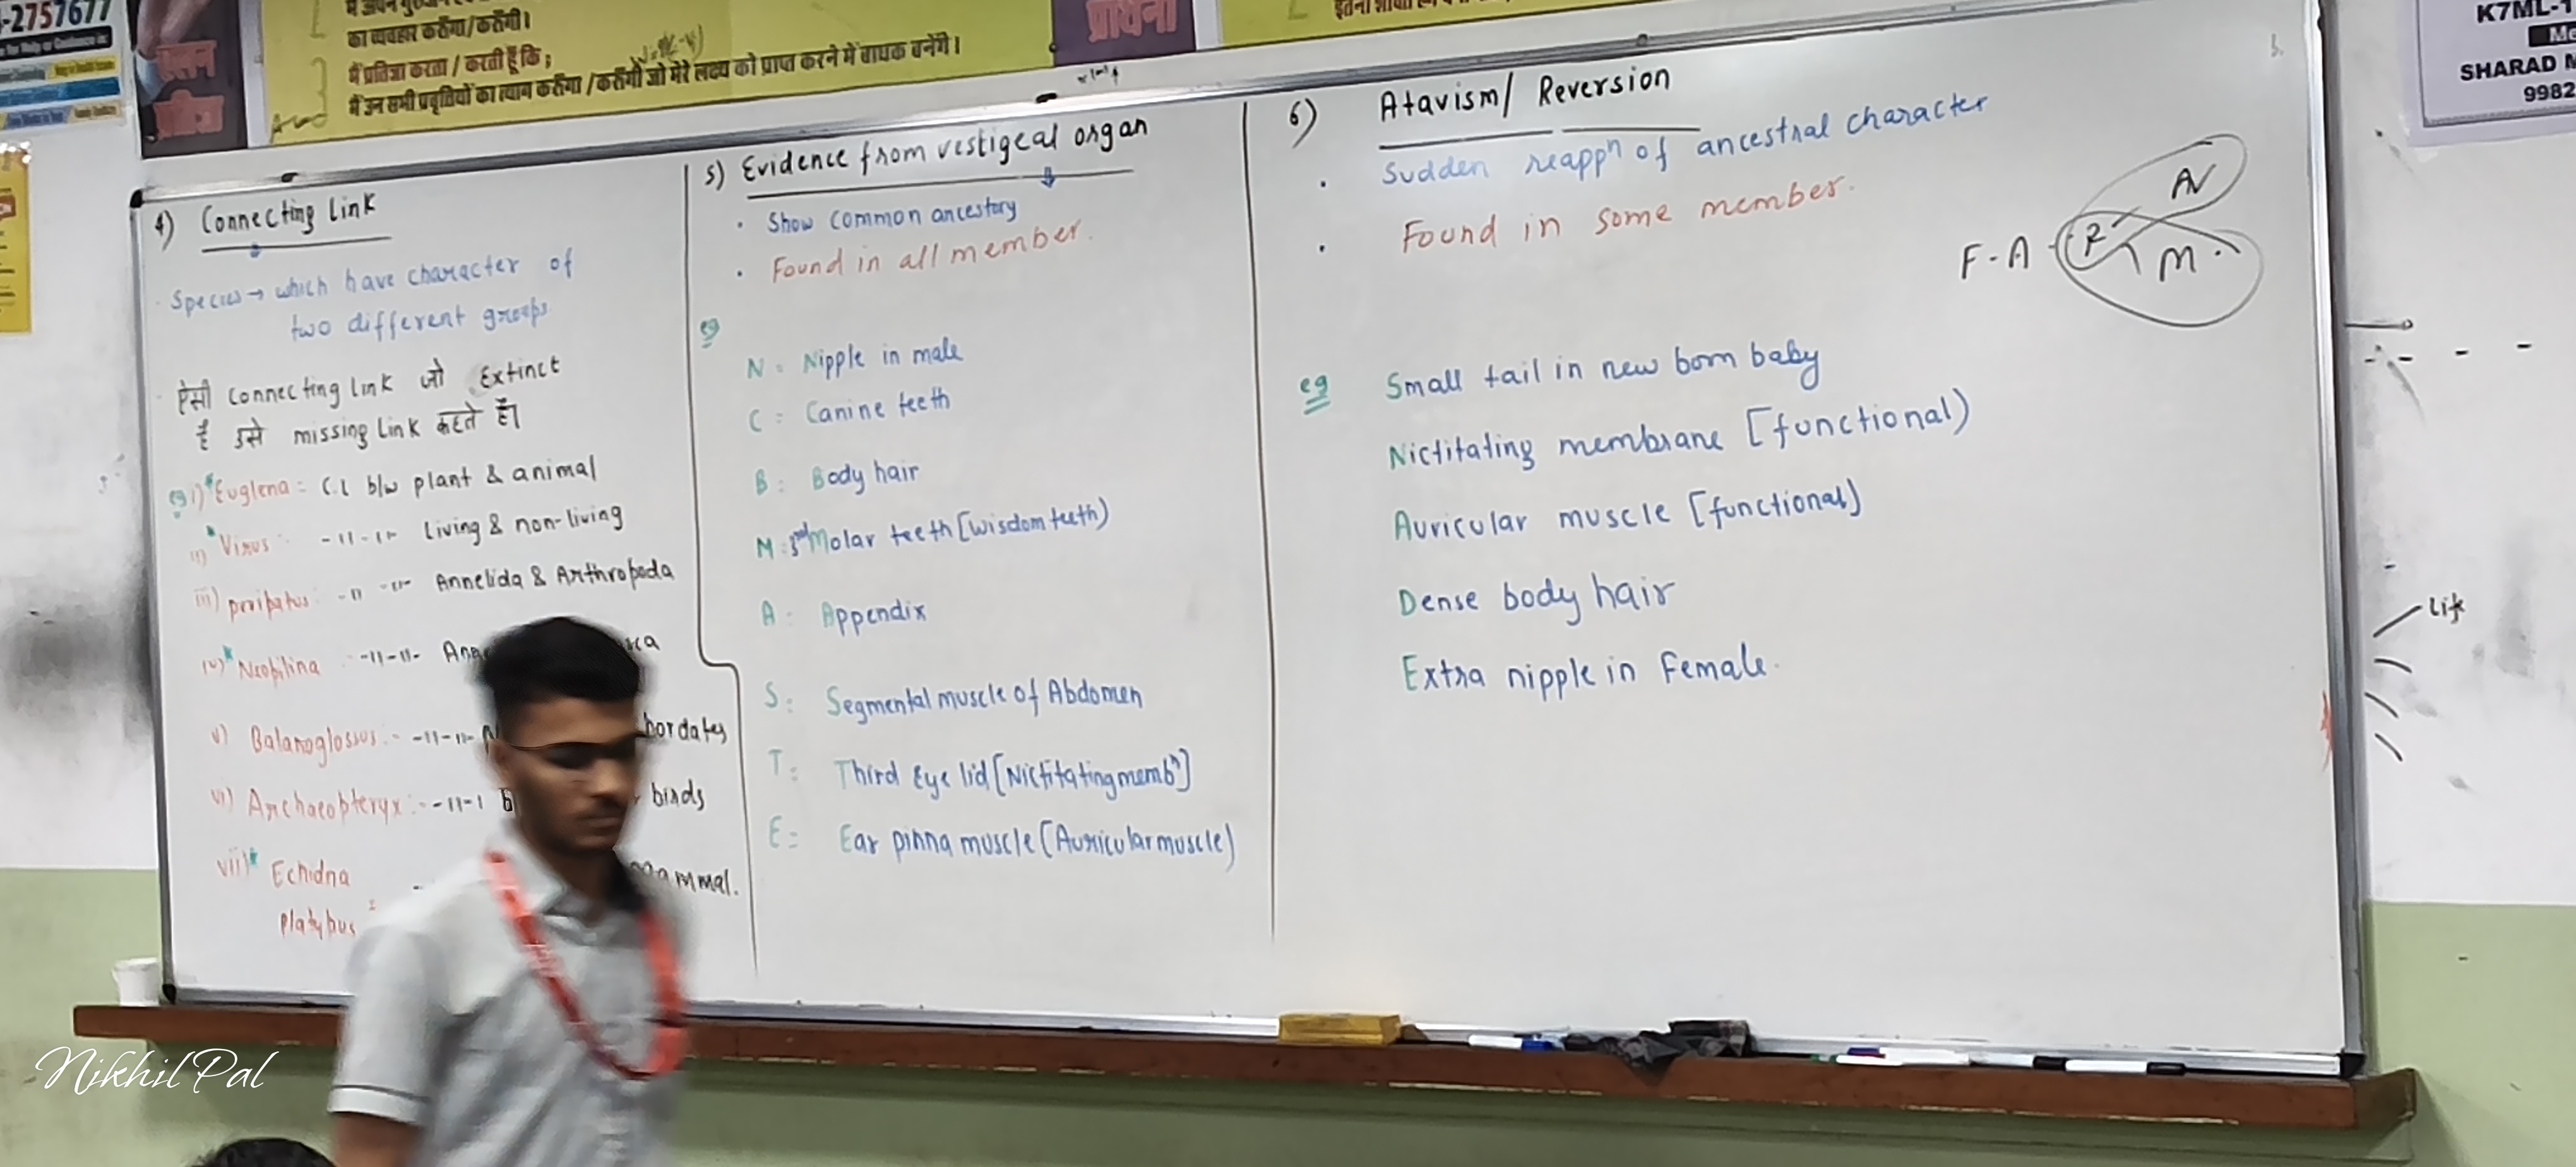 -2757677
का व्यवहार करूँगा/करूँगी।
मैं प्रतिज्ञा करता / करती हूँ कि ;
मैं उन सभी प्रवृतियों का त्याग करूँगा /करूँगी जो मेरे लक्ष्य को प्राप्त करने में बाधक बनेंगे।
प्रार्थना
K7ML-1
Me
SHARAD M
9982
4) Connecting Link
Species → which have character of
two different groups
ऐसी connecting link जो Extinct
है उसे missing Link कहते हैं।
eg i) *Euglena = C.L b/w plant & animal
ii) *Virus: -11-11- Living & non-living
iii) pripatus: -11 -11- Annelida & Arthropoda
iv) *Neopilina: -11-11-
v) Balanoglossus: -11-11- hordates
vi) Archaeopteryx: -11-1 birds
vii)* Echidna ammal.
Platypus
5) Evidence from vestigeal organ
• Show common ancestory
• Found in all member.
eg
N = Nipple in male
C = Canine teeth
B: Body hair
M: 3rd Molar teeth [wisdom teeth)
A: Appendix
S: Segmental muscle of Abdomen
T: Third Eye lid [Nictitating membn]
E= Ear pinna muscle (Auricular muscle)
6) Atavism/ Reversion
• Sudden reappn of ancestral character
• Found in some member.
F-A R AV
M
eg Small tail in new born baby
Nictitating membrane [functional)
Auricular muscle [functional]
Dense body hair
Extra nipple in Female.
Lif
Nikhil Pal